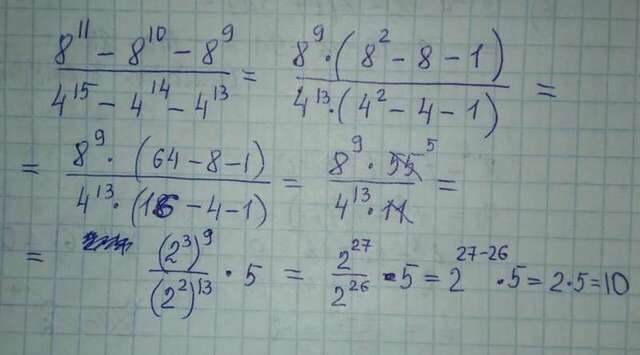 (8^11 − 8^10 − 8^9) / (4^15 − 4^14 − 4^13) = (8^9 · (8^2 − 8 − 1)) / (4^13 · (4^2 − 4 − 1)) =
= (8^9 · (64 − 8 − 1)) / (4^13 · (16 − 4 − 1)) = (8^9 · 55 5) / (4^13 · 11) =
= (2^3)^9 / (2^2)^13 · 5 = 2^27 / 2^26 · 5 = 2^27-26 · 5 = 2·5 = 10